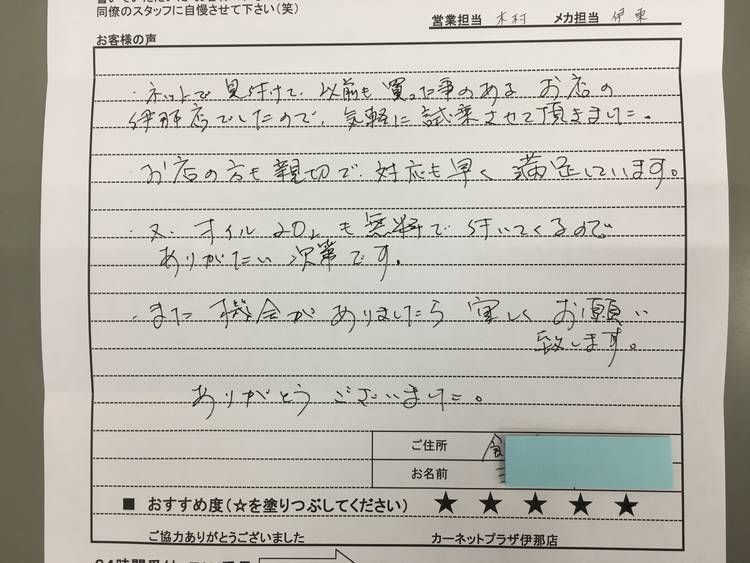 同僚のスタッフに自慢させて下さい(笑)
営業担当 木村 メカ担当 伊東
お客様の声
・ネットで見付けて、以前も買った事のあるお店の
伊那店でしたので、気軽に試乗させて頂きました。
・お店の方も親切で、対応も早く満足しています。
・又、オイル20Lも無料で付いてくるので
ありがたい次第です。
・また機会がありましたら宜しくお願い
致します。
ありがとうございました。
ご住所
お名前
■ おすすめ度(☆を塗りつぶしてください) ★ ★ ★ ★ ★
ご協力ありがとうございました カーネットプラザ伊那店